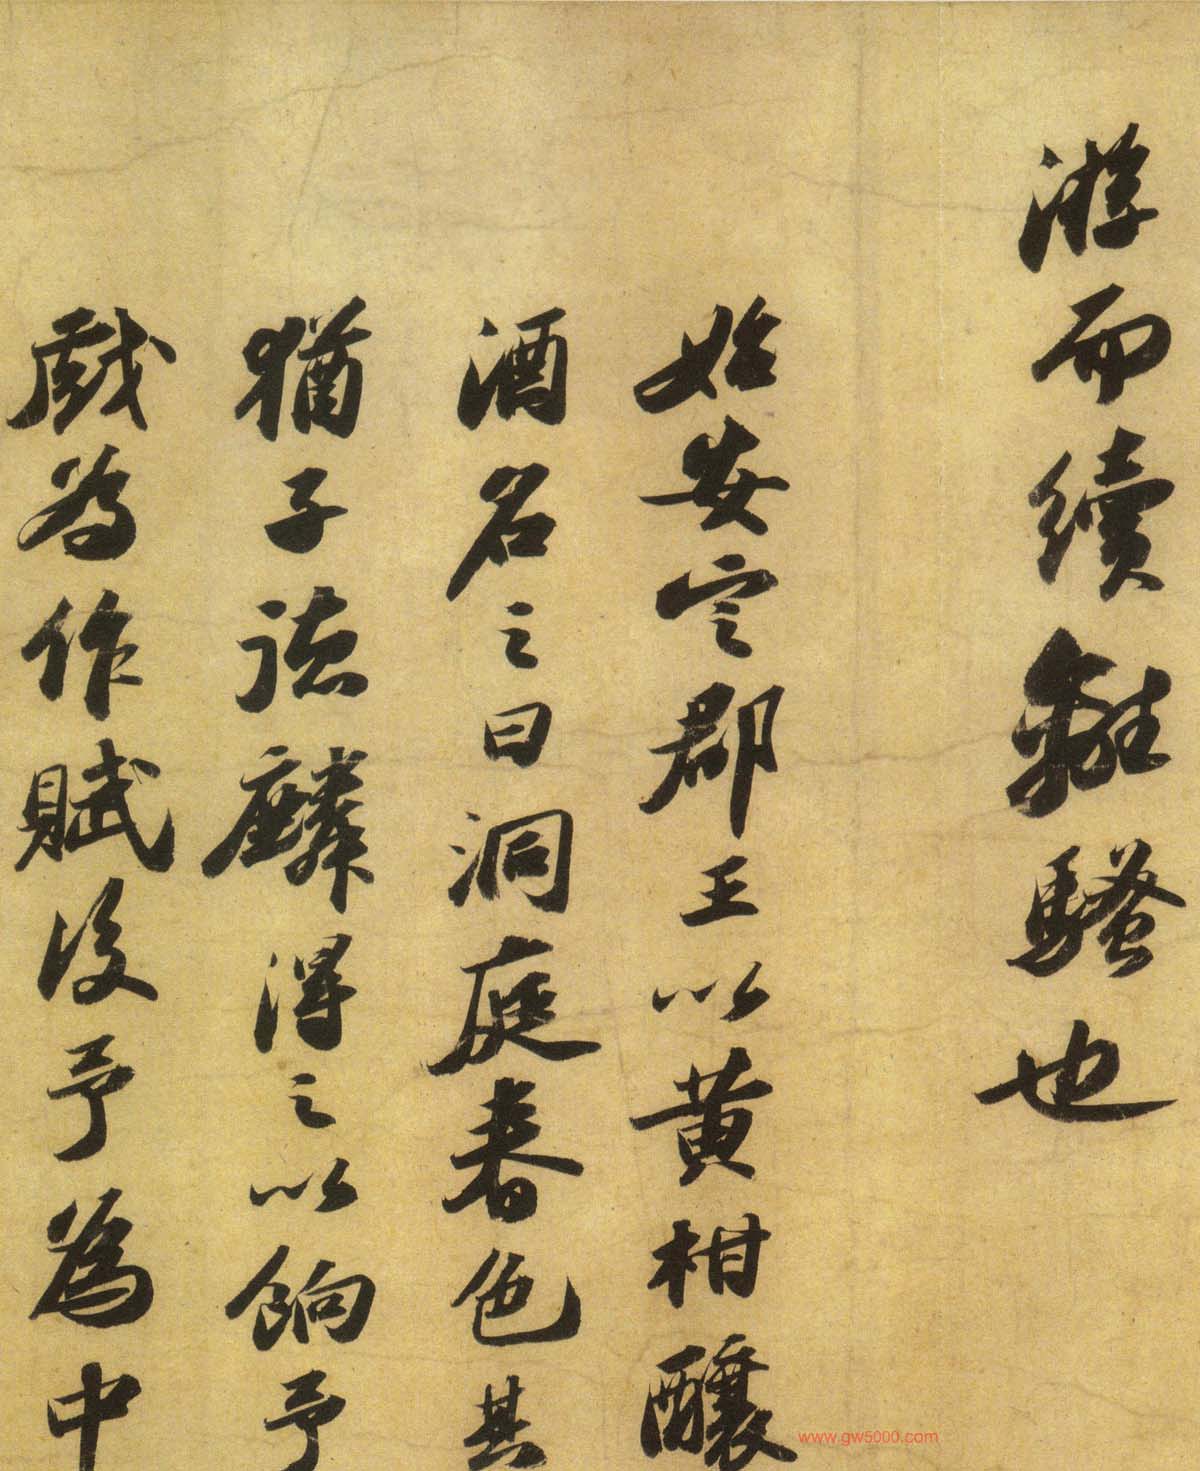 游而續離騷也
始安定郡王以黄柑釀
酒名之曰洞庭春色其
猶子德麟得之以餉予
戲為作賦後予為中
www.gw5000.com